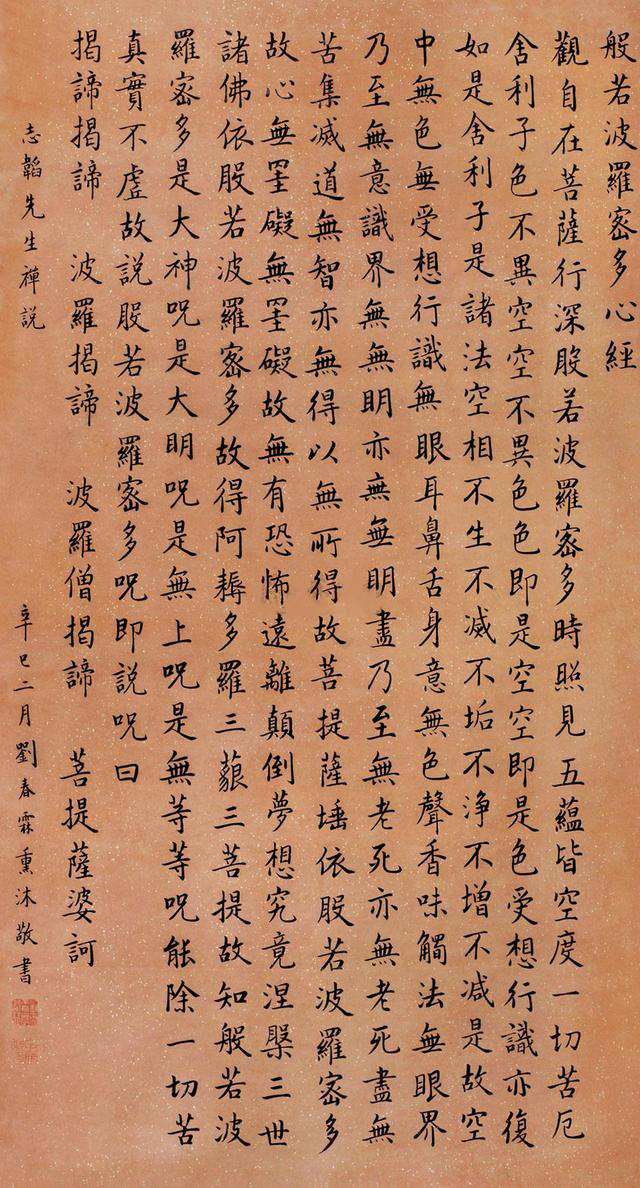 般若波羅宻多心經
觀自在菩薩行深股若波羅宻多時照見五蘊皆空度一切苦厄
舍利子色不異空空不異色色即是空空即是色受想行識亦復
如是舍利子是諸法空相不生不滅不垢不淨不增不減是故空
中無色無受想行識無眼耳鼻舌身意無色聲香味觸法無眼界
乃至無意識界無無明亦無無明盡乃至無老死亦無老死盡無
苦集滅道無智亦無得以無所得故菩提薩埵依股若波羅宻多
故心無罣礙無罣礙故無有恐怖遠離顛倒夢想究竟涅槃三世
諸佛依股若波羅宻多故得阿耨多羅三藐三菩提故知般若波
羅宻多是大神呪是大明呪是無上呪是無等等呪能除一切苦
真實不虛故説股若波羅宻多呪即説呪曰
揭諦揭諦 波羅揭諦 波羅僧揭諦 菩提薩婆訶
志韜先生禪説 辛巳二月劉春霖熏沐敬書